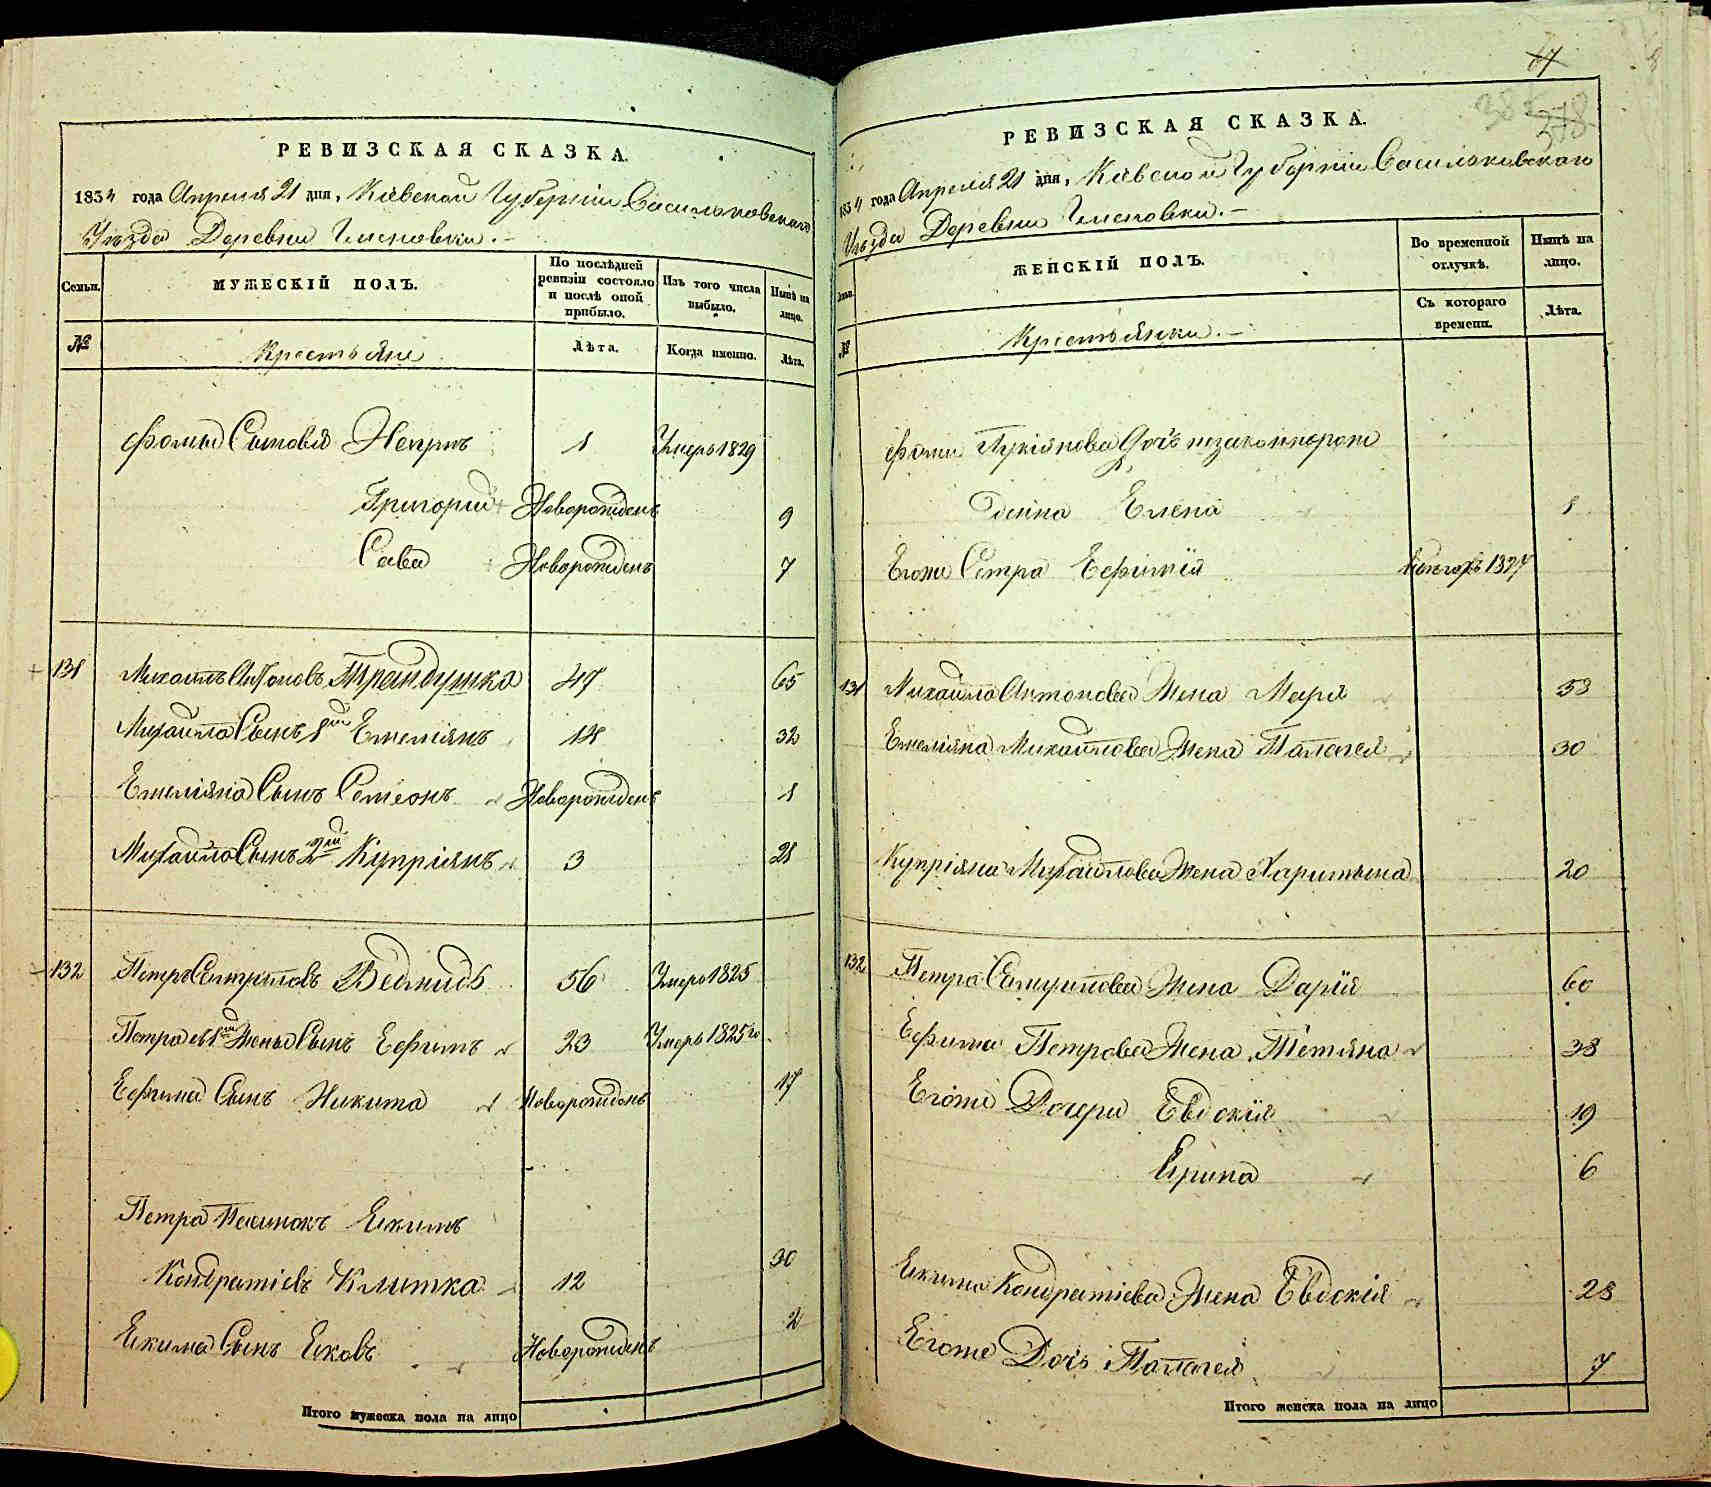 РЕВИЗСКАЯ СКАЗКА.
1834 года Апреля 21 дня, Кіевской Губерніи Васильковскаго
Уѣзда Деревни
Семьи.
МУЖЕСКІЙ ПОЛЪ.
По послѣдней ревизіи состояло и послѣ оной прибыло.
Изъ того числа выбыло.
Нынѣ на лицо.
№
Крестьяне
Лѣта.
Когда именно.
Лѣта.
Фомы Сыновья 1 Умеръ 1829
Григорий Новорожденъ 9
Сава Новорожденъ 7
131 Михаилъ Антоновъ 47 65
Михайла Сынъ 1й Емеліянъ 18 32
Емеліяна Сынъ Семеонъ Новорожденъ 1
Михайла Сынъ 2й Купріянъ 3 28
132 Петръ Ведмидь 56 Умеръ 1825
Петра отъ 1й Жены Сынъ Ефимъ 23 Умеръ 1825го
Ефима Сынъ Никита Новорожденъ 17
Петра Пасинокъ Екимъ
Кондратіевъ Клитка 12 30
Екима Сынъ Яковъ Новорожденъ 2
Итого мужеска пола на лицо
РЕВИЗСКАЯ СКАЗКА.
1834 года Апреля 21 дня, Кіевской Губерніи Васильковскаго
Уѣзда Деревни
ЖЕНСКІЙ ПОЛЪ.
Во временной отлучкѣ.
Нынѣ на лицо.
№
Крестьянки.
Съ котораго времени.
Лѣта.
Фомы Дочь незаконнорож
дѣнна Елена 1
Егоже Сестра Ефимія
131 Михайла Антонова Жена Марія 53
Емеліяна Михайлова Жена Палагея 30
Купріяна Михайлова Жена Харитына 20
132 Петра Жена Дарія 60
Ефима Петрова Жена Тетяна 38
Егоже Дочери Евдокія 19
Ирина 6
Екима Кондратіева Жена Евдокія 28
Егоже Дочь Палагея 7
Итого женска пола на лицо